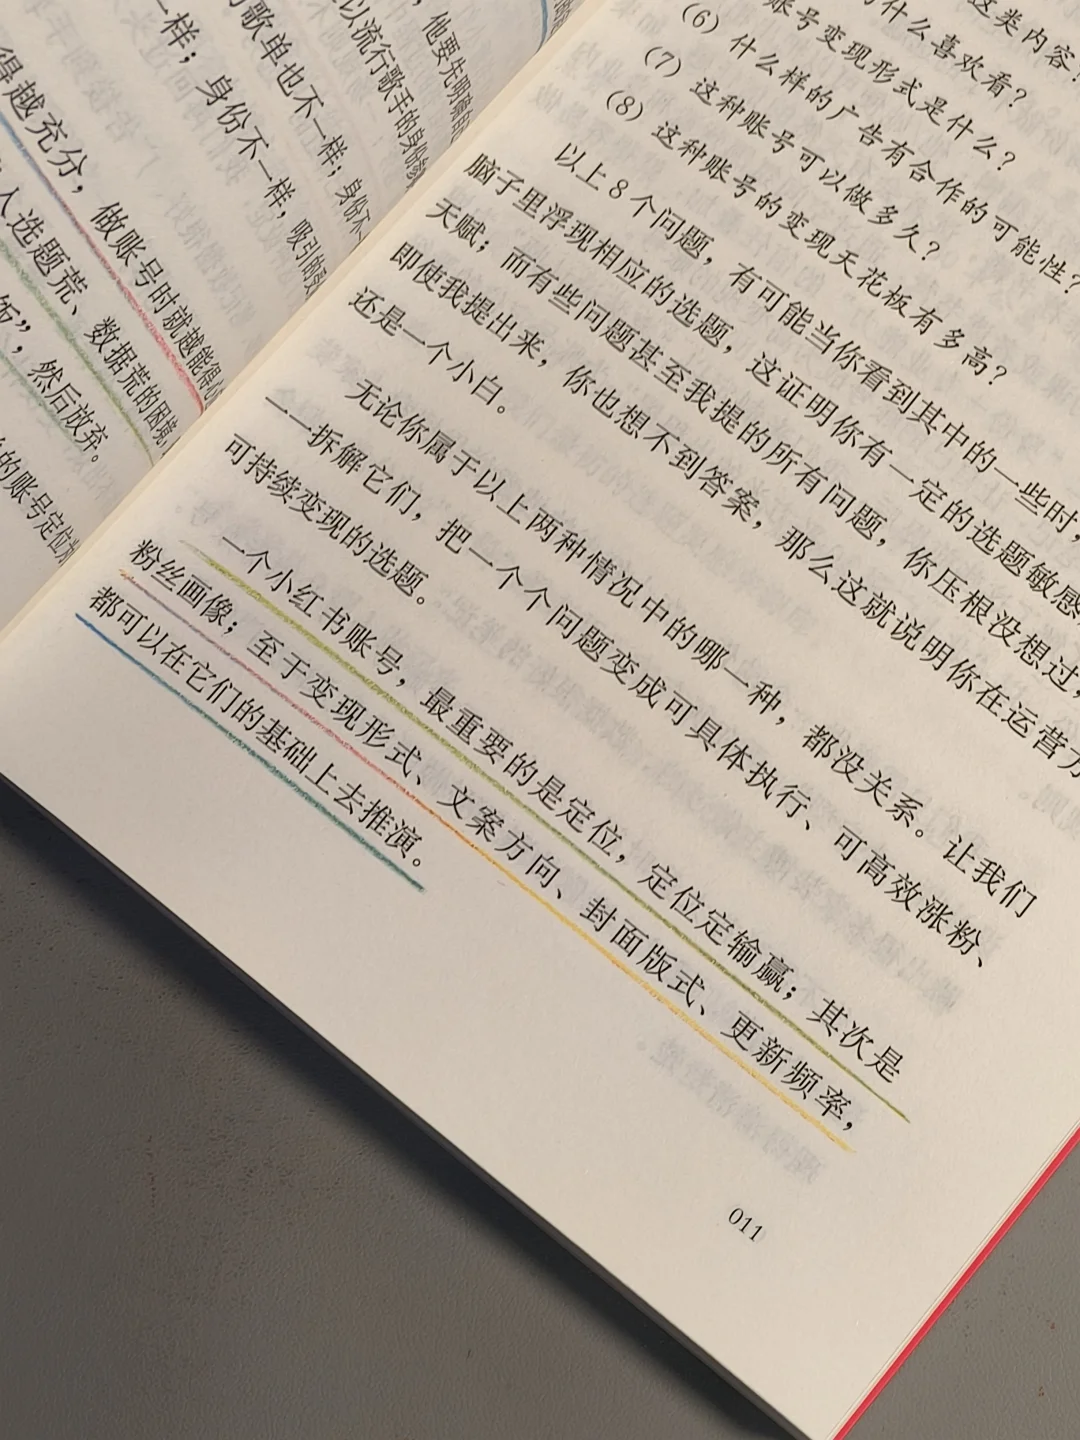 ，他要先明确自
以流行歌手的身份
歌单也不一样；身份不一
一样；身份不一样，吸引的
得越充分，做账号时就越能得心
人选题荒、数据荒的困境，
饭”，然后放弃。
的账号定位为
这类内容？
什么喜欢看？
账号变现形式是什么？
（6）什么样的广告有合作的可能性？
（7）这种账号可以做多久？
（8）这种账号的变现天花板有多高？
以上8个问题，有可能当你看到其中的一些时，
脑子里浮现相应的选题，这证明你有一定的选题敏感
天赋；而有些问题甚至我提的所有问题，你压根没想过，
即使我提出来，你也想不到答案，那么这就说明你在运营方
还是一个小白。
无论你属于以上两种情况中的哪一种，都没关系。让我们
一一拆解它们，把一个个问题变成可具体执行、可高效涨粉、
可持续变现的选题。
一个小红书账号，最重要的是定位，定位定输赢；其次是
粉丝画像；至于变现形式、文案方向、封面版式、更新频率，
都可以在它们的基础上去推演。
011